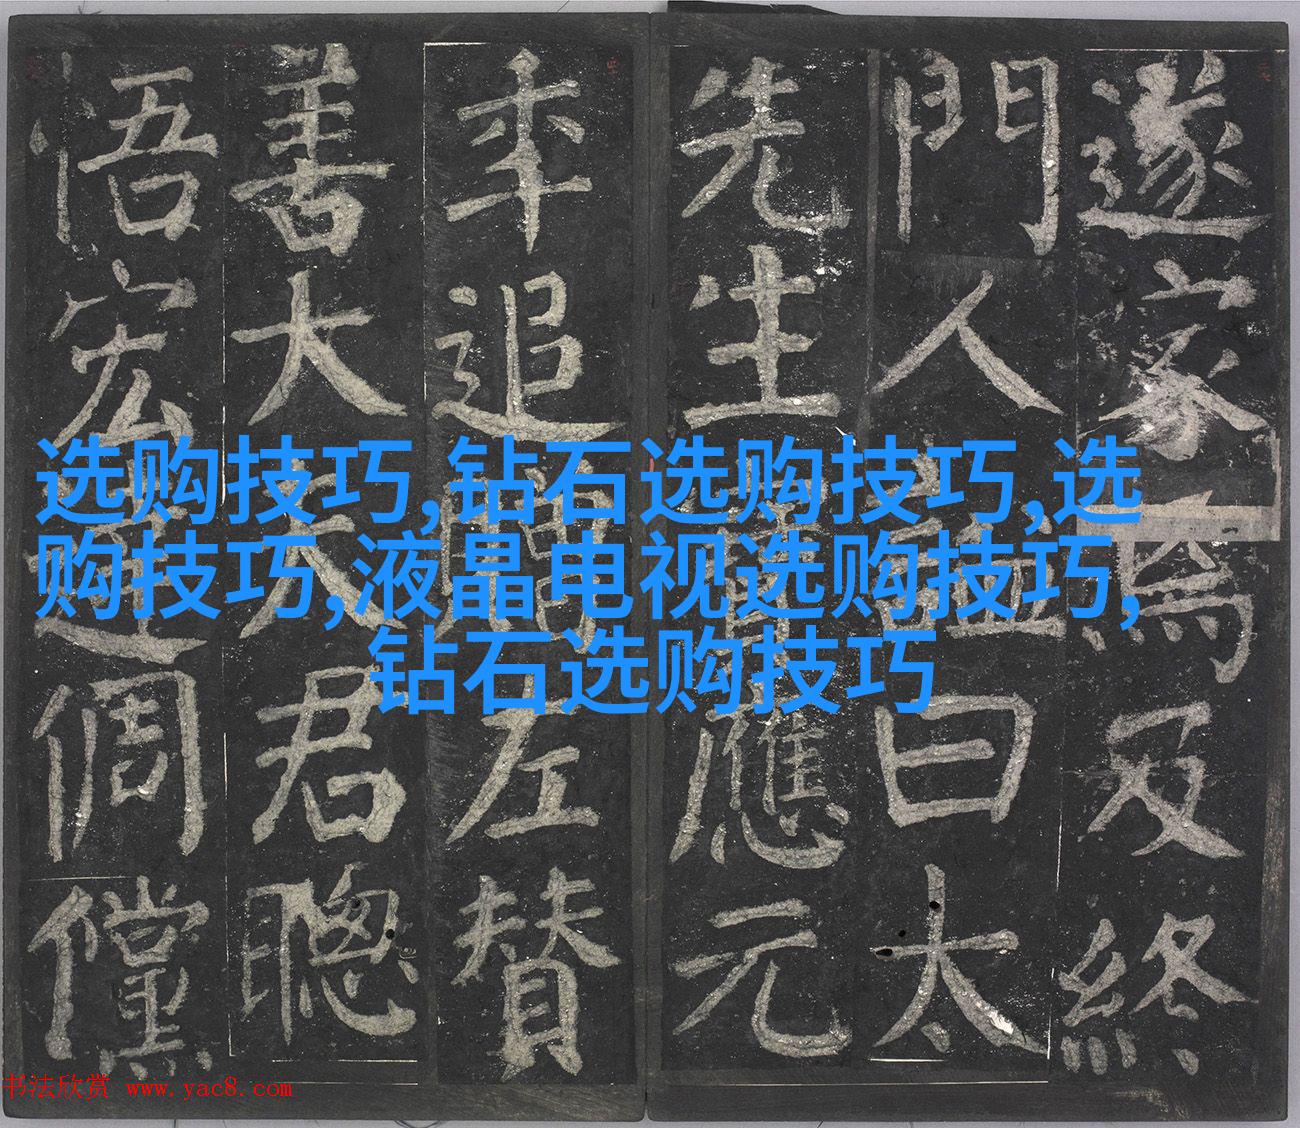 选购技巧,钻石选购技巧,选
购技巧,液晶电视选购技巧,
钻石选购技巧
遂家焉及終
門人謚曰太
先生寶應元
年追贈左賛
善大夫君聰
悟宏達倜儻
书法欣赏 www.yac8.com